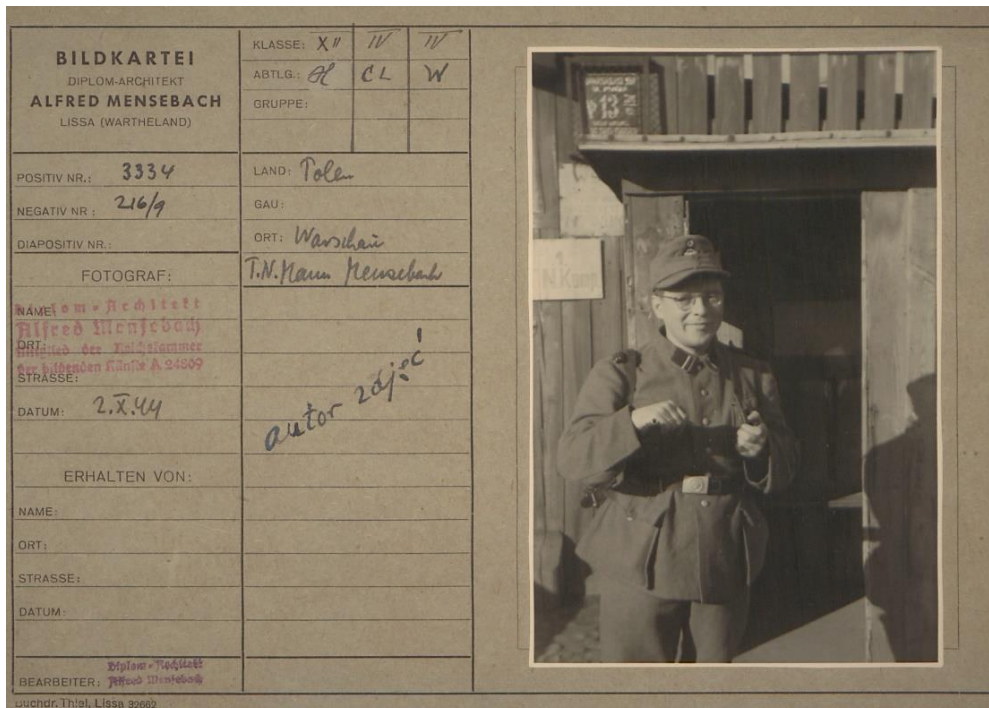 BILDKARTEI
DIPLOM-ARCHITEKT
ALFRED MENSEBACH
LISSA (WARTHELAND)
KLASSE: XII IV IV
ABTLG.: CL W
GRUPPE:
POSITIV NR.: 3334
NEGATIV NR.: 216/9
DIAPOSITIV NR.:
LAND: Polen
GAU:
ORT: Warschau
T.N. Mann Mensebach
FOTOGRAF:
NAME:
Diplom-Architekt
Alfred Mensebach
ORT:
Mitglied der Reichskammer
der bildenden Künste A 24609
STRASSE:
DATUM: 2.X.44
autor zdjęć
ERHALTEN VON:
NAME:
ORT:
STRASSE:
DATUM:
Diplom-Architekt
BEARBEITER: Alfred Mensebach
Buchdr. Thiel, Lissa 32662
13
1.
T.N. Komp.